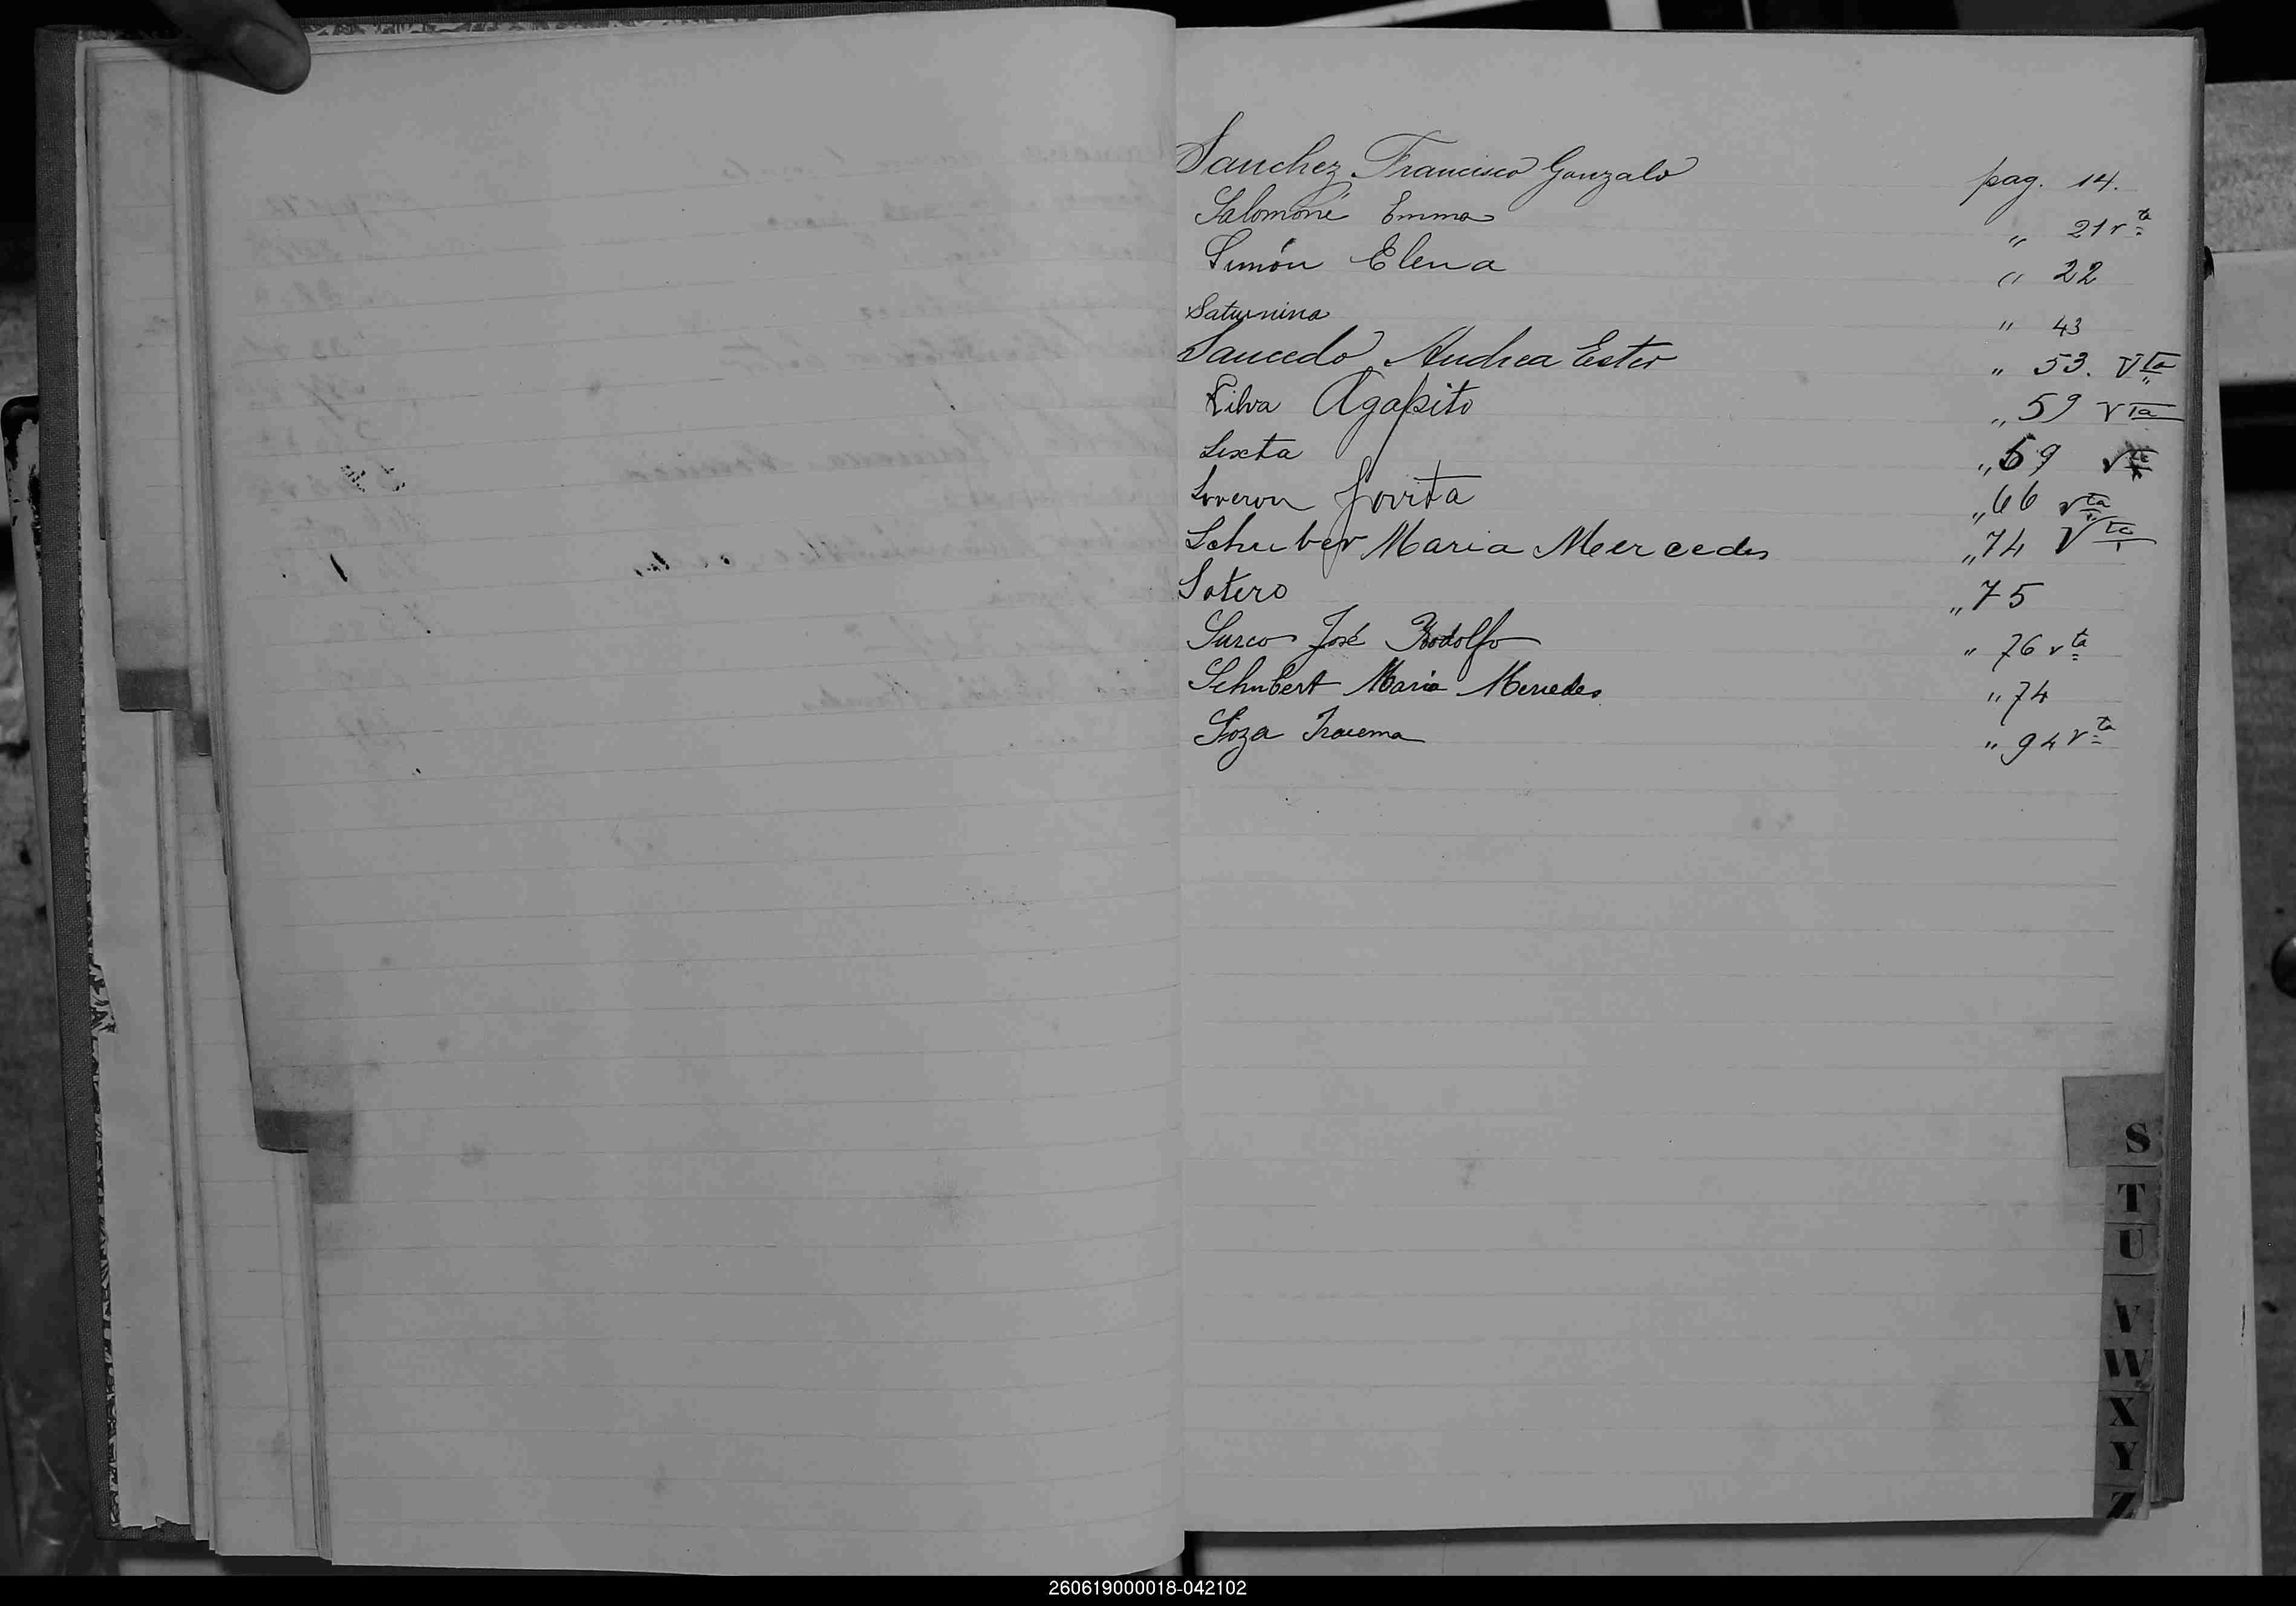 Sanchez Francisco Gonzalo pag. 14.
Salomoné Emma " 21 vta
Simón Elena " 22
Saturnina " 43
Saucedo Andrea Ester " 53. Vta
Silva Agapito " 59 vta
Sixta " 59 vta
Soveron Jovita " 66 vta
Schuber Maria Mercedes " 74 Vta
Sotero " 75
Surco José Rodolfo " 76 vta
Schubert Maria Mercedes " 74
Soza Iracema " 94 vta
S
T
U
V
W
X
Y
Z
260619000018-042102